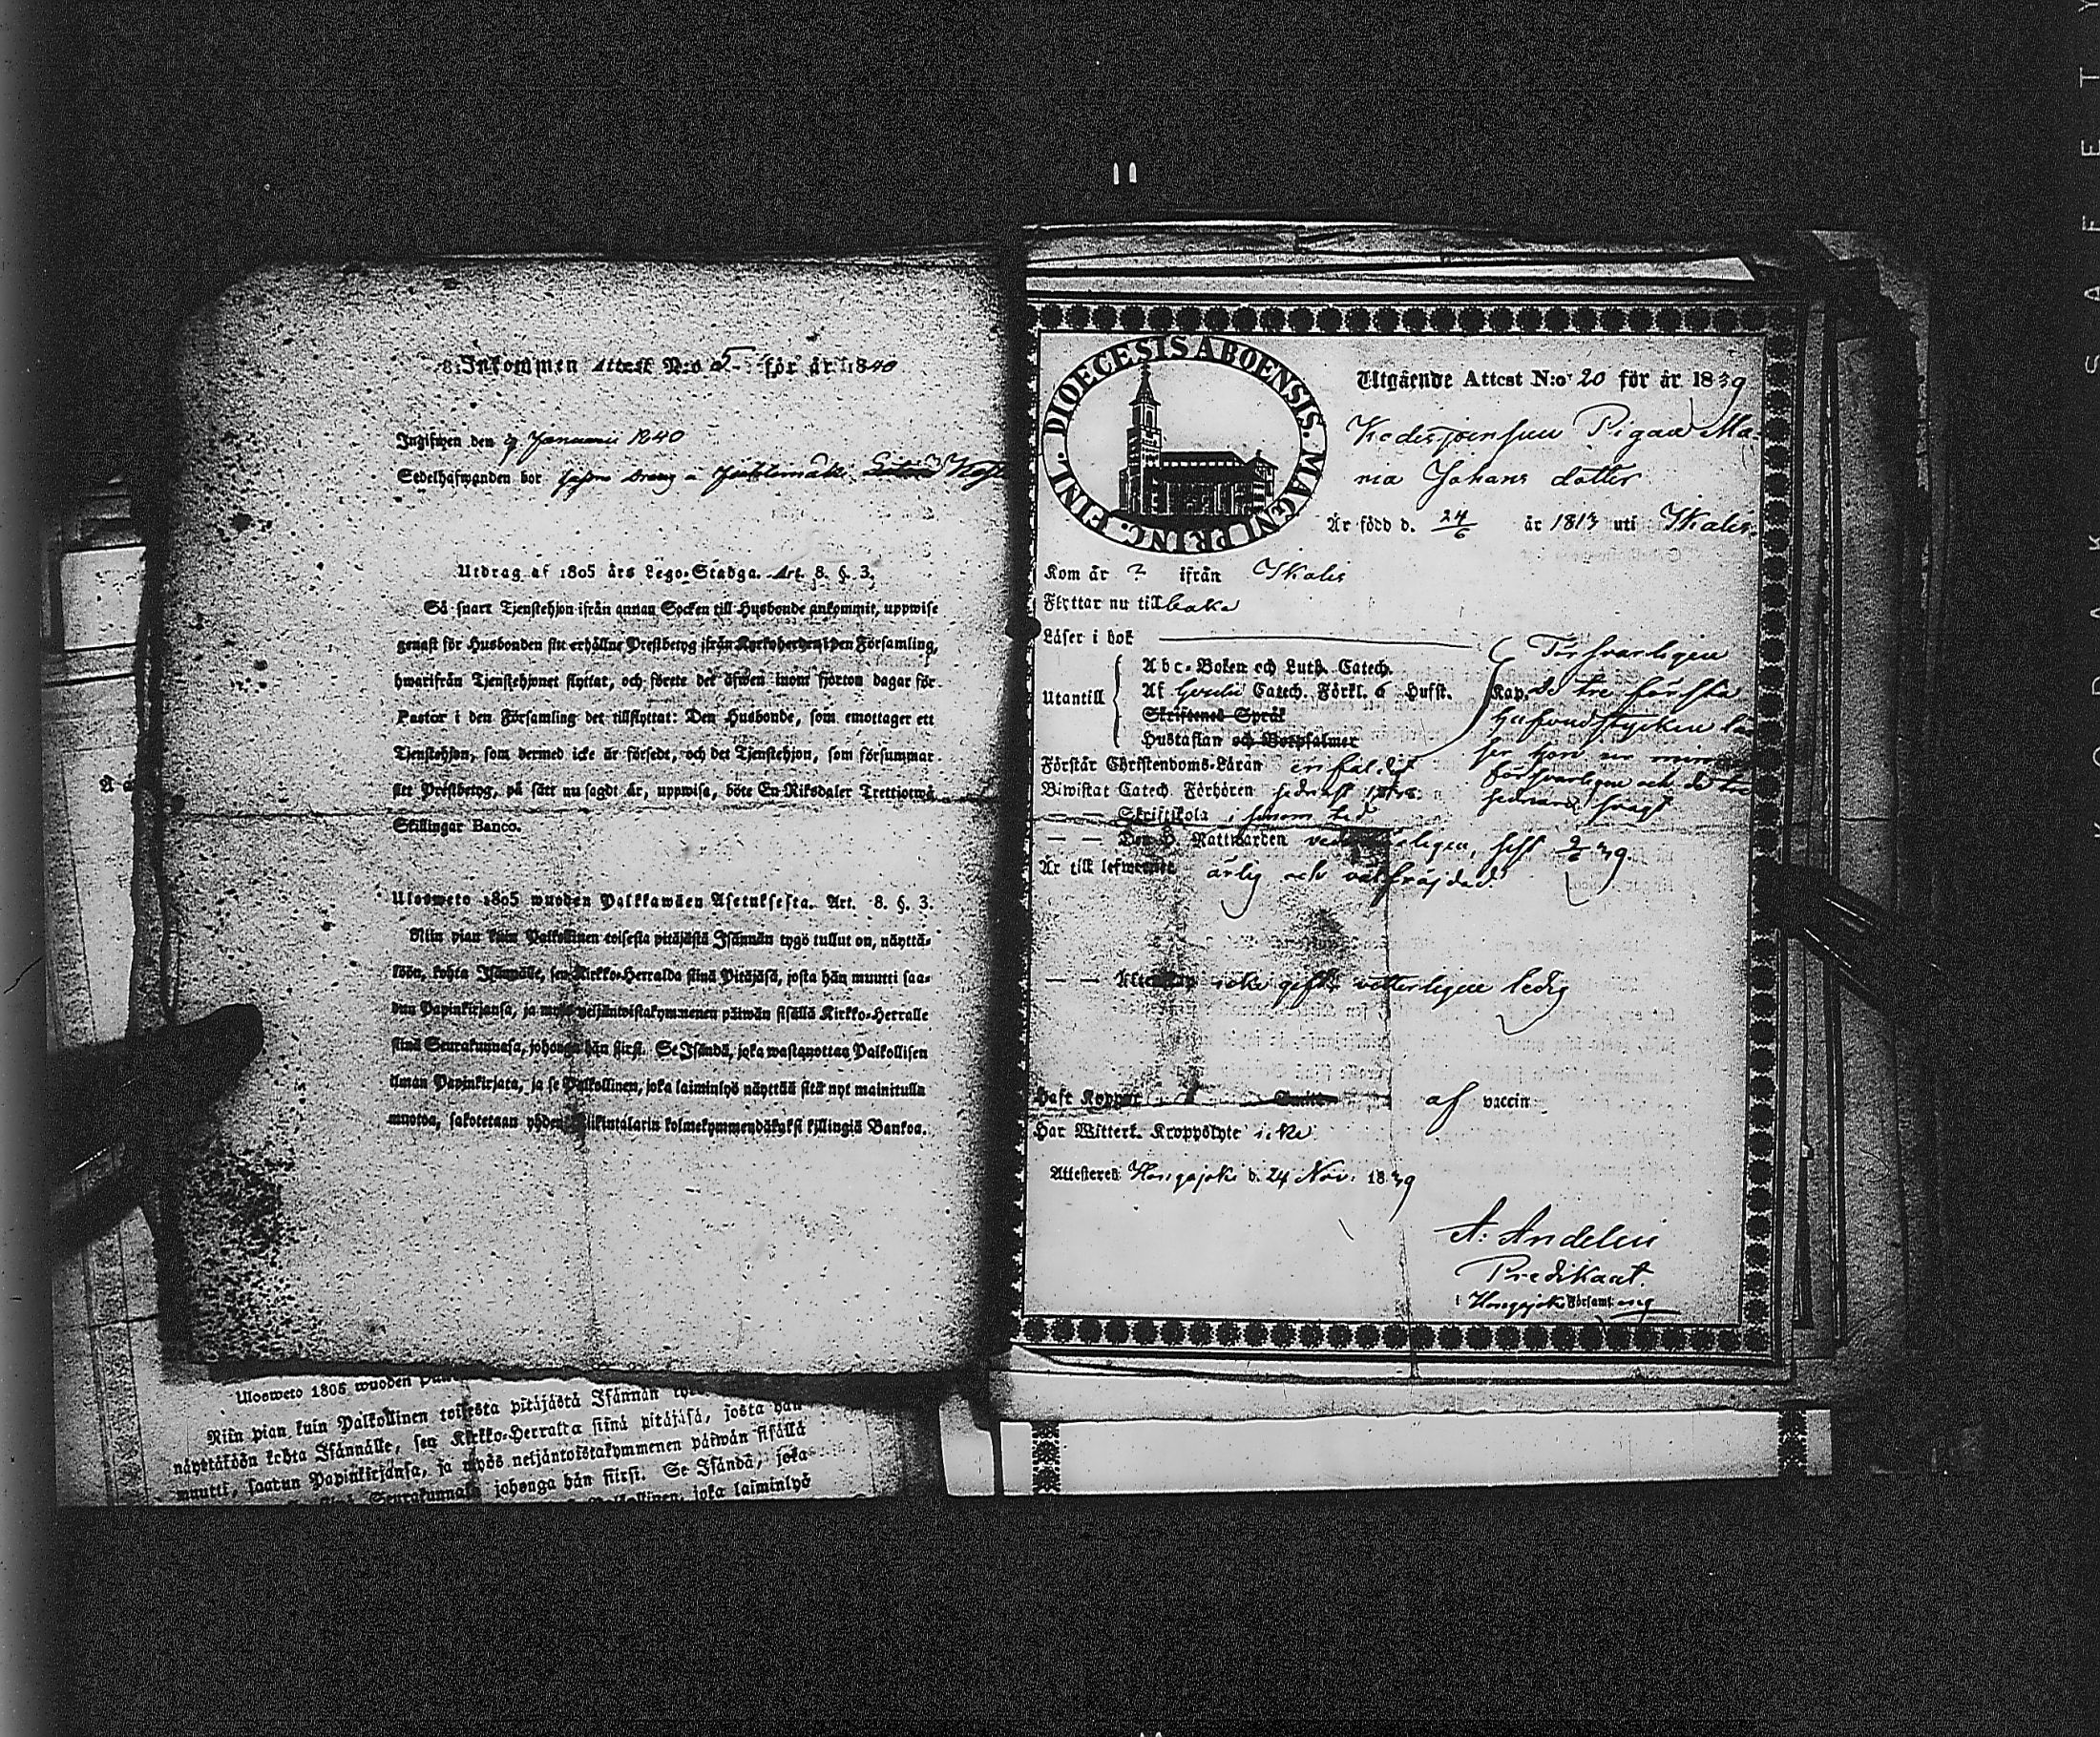 Inkommen Attest N:o 5 för år 1840
Ingifwen den 9 Januari 1840
Sedelhafwanden bor
Utdrag af 1805 års Lego-Stadga. Art. 8. §. 3.
Så snart Tjenstehjon ifrån annan Socken till Husbonde ankommit, uppwise
genast för Husbonden sitt erhållne Prestbetyg ifrån Kyrkoherden i den Församling,
hwarifrån Tjenstehjonet flyttat, och förete det äfwen inom fjorton dagar för
Pastor i den Församling det tillflyttat: Den Husbonde, som emottager ett
Tjenstehjon, som dermed icke är försedt, och det Tjenstehjon, som försummar
sitt Prestbetyg, på sätt nu sagdt är, uppwisa, böte En Riksdaler Trettiotwå
Skillingar Banco.
Ulosweto 1805 wuoden Palkkawäen Asetuksesta. Art. 8. §. 3.
Niin pian kuin Palkollinen toisesta pitäjästä Isännän tygö tullut on, näyttä-
köön, kohta Isännälle, sen Kirkko-Herralda siinä Pitäjäsä, josta hän muutti saa-
dun Papinkirjansa, ja myös neljäntoistakymmenen päiwän sisällä Kirkko-Herralle
siinä Seurakunnasa, johonga hän siirsi. Se Isändä, joka wastanottaa Palkollisen
ilman Papinkirjata, ja se Palkollinen, joka laiminlyö näyttää sitä nyt mainitulla
muotoa, sakotetaan yhden Riikintalarin kolmekymmendäkaksi killingiä Bankoa.
DIOECESIS ABOENSIS. MAGNI PRINC. FINL.
Utgående Attest N:o 20 för år 1839
Pigan Ma-
ria Johans dotter
Är född d. 24/6 år 1813 uti Ikalis
Kom år ? ifrån Ikalis
Flyttar nu tillbaka
Läser i bok Försvarligen
Utantill
Abc-Boken och Luth. Catech.
Af Catech. Förkl. a Hufst. Kap. de tre första
Skriftenes Språk hufvudstycken
Hustaflan och Botpsalmer
Förstår Christendoms-Läran enfaldigt
Biwistat Catech. Förhören sednast
— — Skriftskola
— — Den H. Nattwarden sist 9/6 39.
Är till lefwernet ärlig och välfräjdad.
— — Äktenskap icke gift, vetterligen ledig
Haft Koppor af vaccin
Har Witterl. Kroppslyte icke
Attesteras Hongajoki d. 24 Nov. 1839
A. Andelin
Predikant.
i Hongajoki Församling
Ulosweto 1805 wuoden
Niin pian kuin Palkollinen toisesta pitäjästä Isännän
näyttäköön kohta Isännälle, sen Kirkko-Herralta siinä pitäjäsä, josta hän
muutti, saatun Papinkirjansa, ja myös neljäntoistakymmenen päiwän sisällä
Seurakunnasa johonga hän siirsi. Se Isändä, joka
Palkollinen, joka laiminlyö
SAFETY